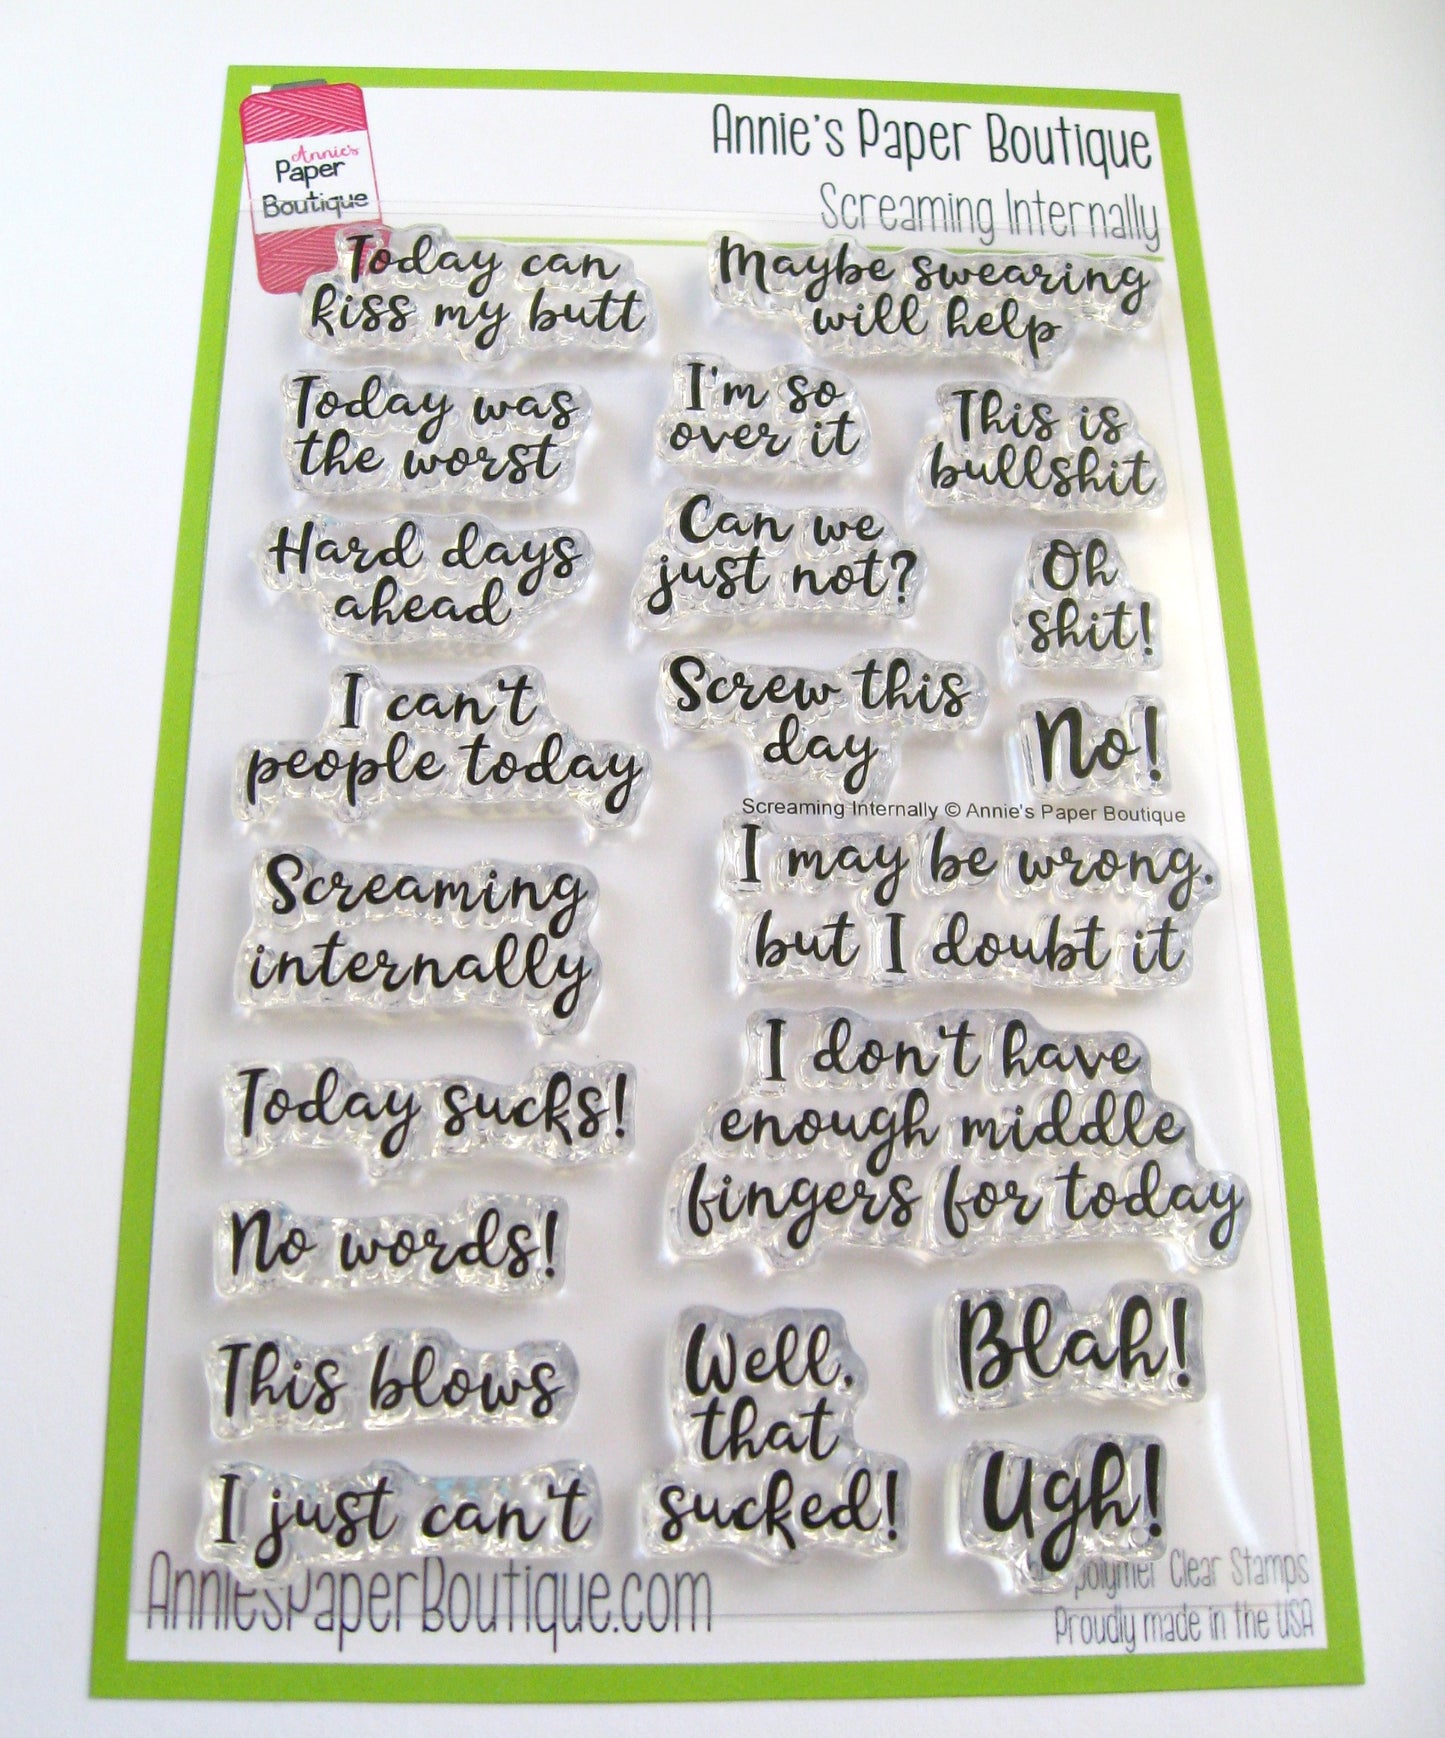 Annie's Paper Boutique
Screaming Internally
Annie's
Paper
Boutique
Today can
kiss my butt
Maybe swearing
will help
Today was
the worst
I'm so
over it
This is
bullshit
Hard days
ahead
Can we
just not?
Oh
shit!
I can't
people today
Screw this
day
No!
Screaming Internally © Annie's Paper Boutique
Screaming
internally
I may be wrong,
but I doubt it
Today sucks!
I don't have
enough middle
fingers for today
No words!
This blows
Well,
that
sucked!
Blah!
I just can't
Ugh!
AnniesPaperBoutique.com
Clear Stamps
Proudly made in the USA